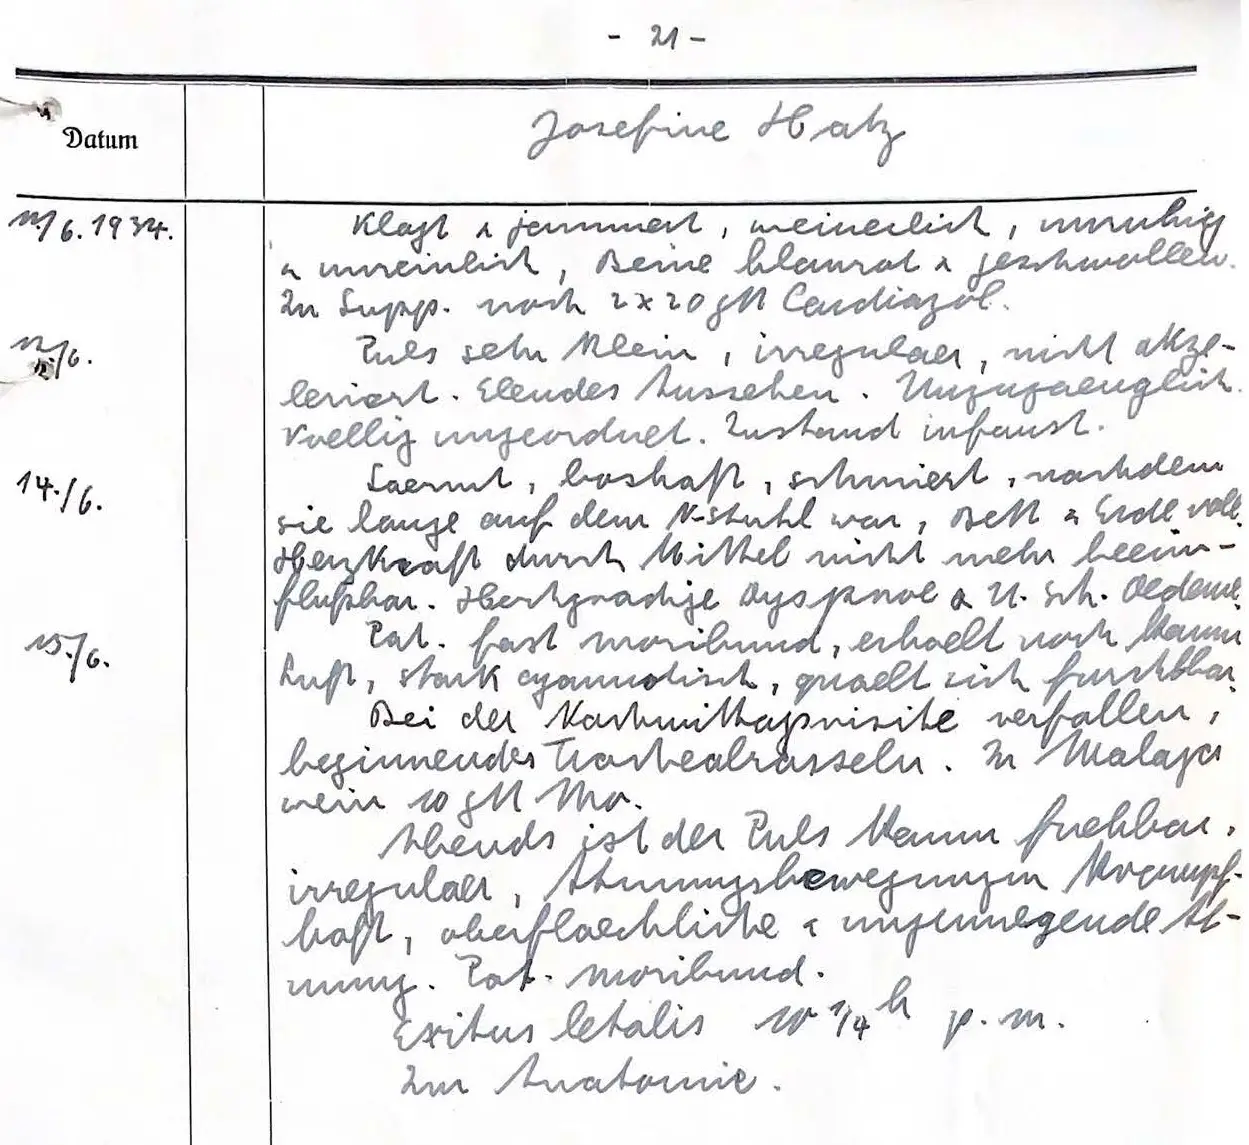 - 21 -
Datum
Josefine Hatz
11./6.1934.
Klagt u jammert, weinerlich, unruhig
u unreinlich, Beine blaurot u geschwollen.
In Supp. noch 2x20 gtt Cardiazol.
12./6.
Puls sehr klein, irregulaer, nicht akze-
leriert. Elendes Aussehen. Unzugaenglich.
Voellig ungeordnet. Zustand infaust.
14./6.
Laermt, boshaft, schmiert, nachdem
sie lange auf dem N-Stuhl war, Bett u Erde voll.
Herzkraft durch Mittel nicht mehr beein-
flußbar. Hochgradige Dyspnoe u U. Sch. Oedeme.
15./6.
Pat. fast moribund, erhaelt noch kaum
Luft, stark cyanotisch, quaelt sich furchtbar.
Bei der Nachmittagsvisite verfallen,
beginnendes Trachealrasseln. In Malaga
wein 10 gtt Mo.
Abends ist der Puls kaum fuehlbar,
irregulaer, Atmungsbewegungen krampf-
haft, oberflaechliche u ungenuegende At-
mung. Pat. moribund.
Exitus letalis 10 1/4 h p.m.
Zur Anatomie.